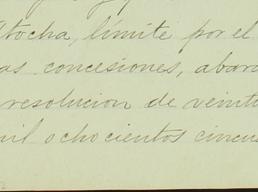 Atocha, límite por el
as concesiones, abara
resolucion de veintu
mil ochocientos cincu